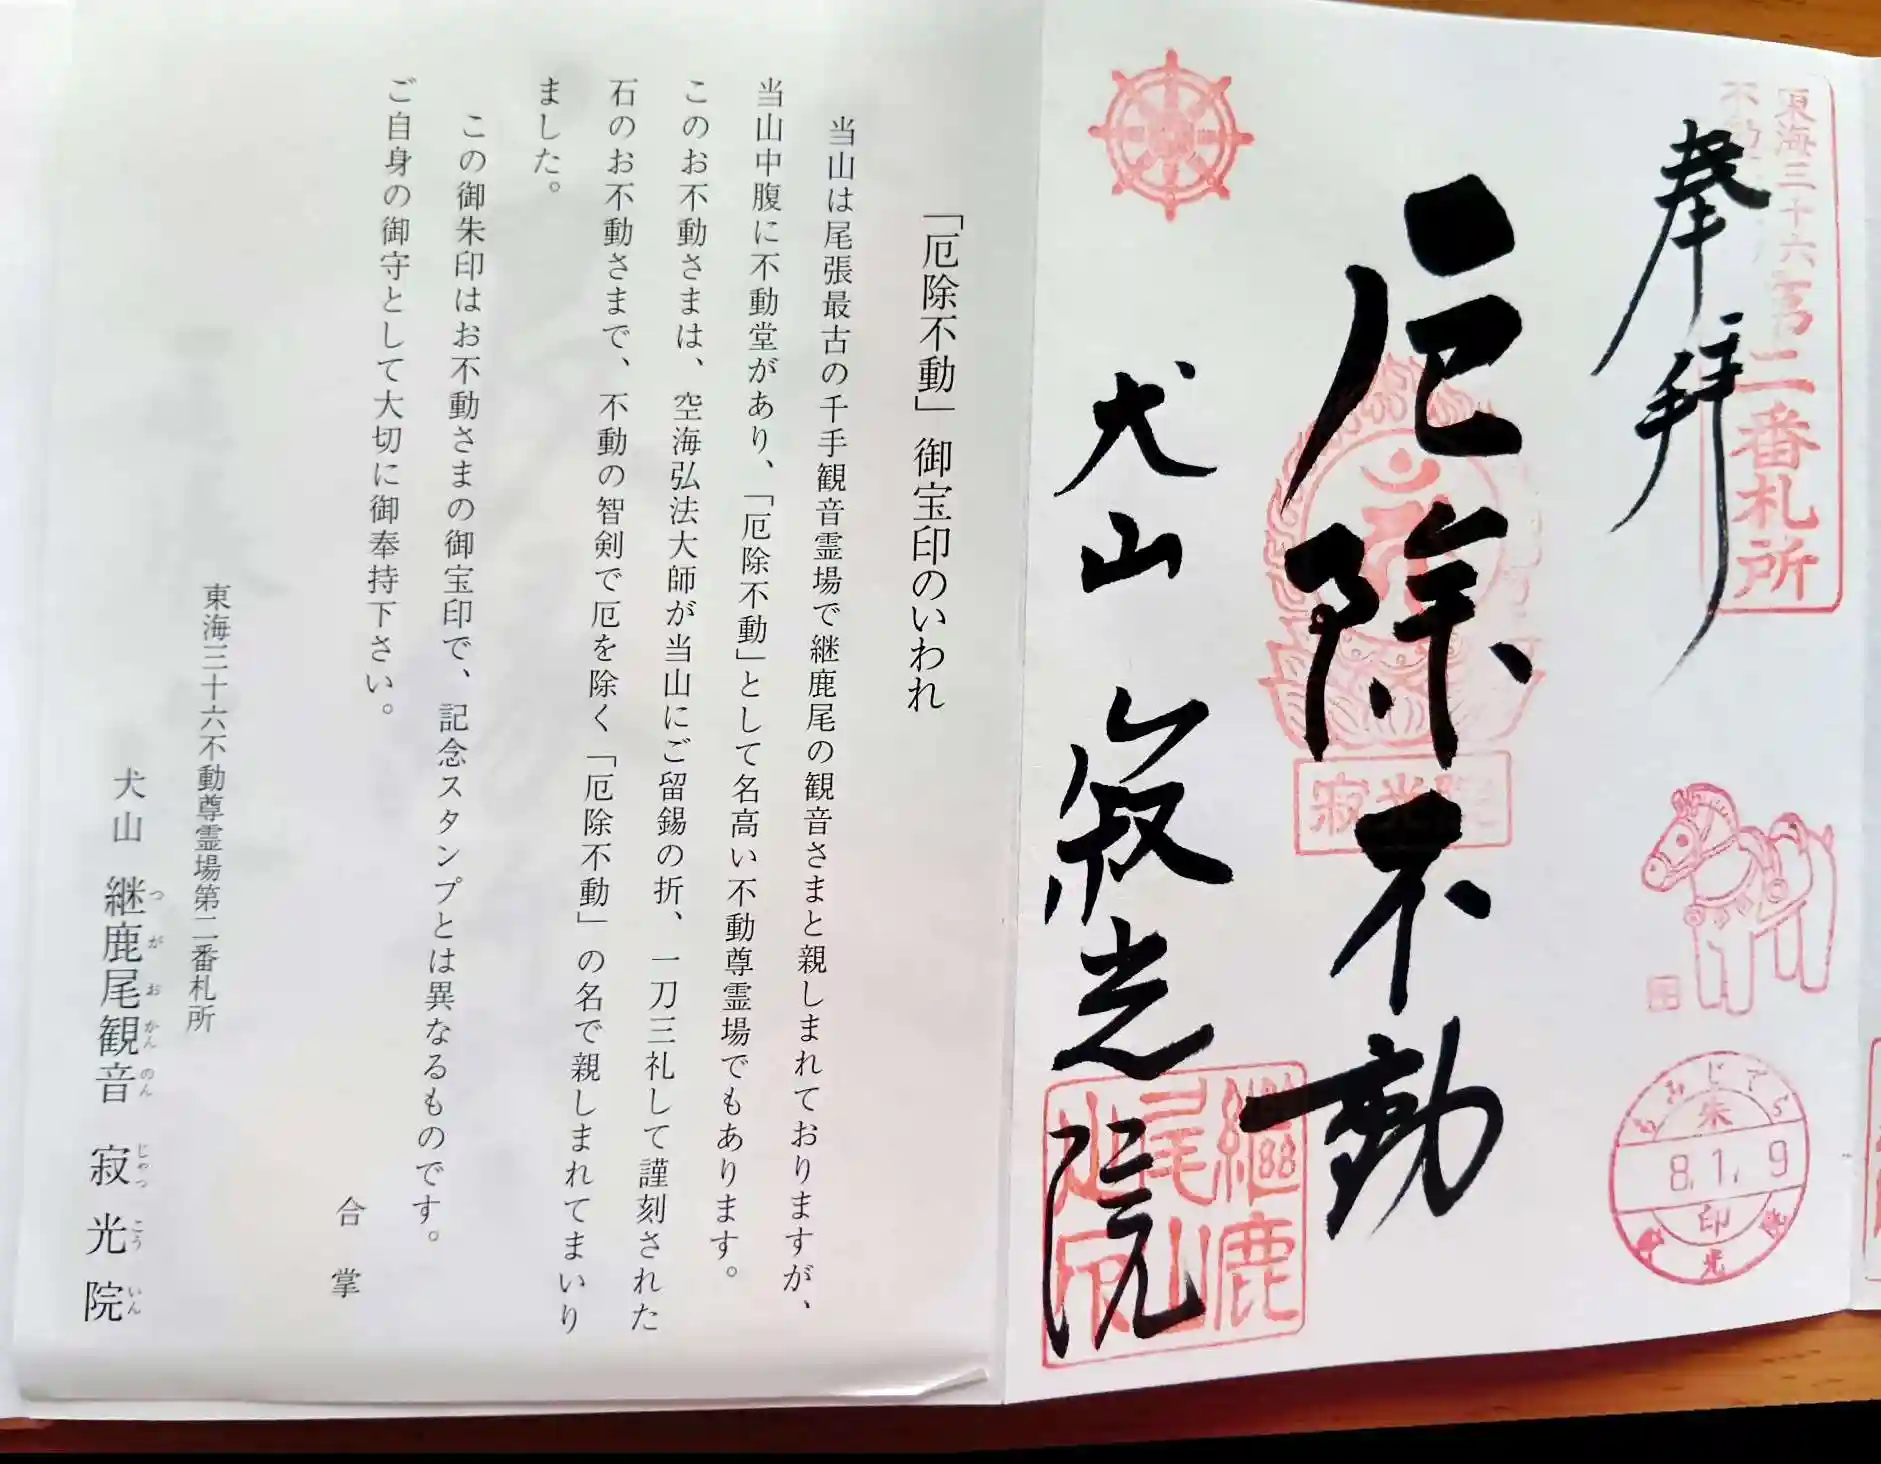 奉拝
東海三十六
不動
第二番札所
厄除不動
寂光院
犬山 寂光院
継鹿
尾山
もみじでら
朱
8.1.9
印
寂光院
「厄除不動」御宝印のいわれ
当山は尾張最古の千手観音霊場で継鹿尾の観音さまと親しまれておりますが、
当山中腹に不動堂があり、「厄除不動」として名高い不動尊霊場でもあります。
このお不動さまは、空海弘法大師が当山にご留錫の折、一刀三礼して謹刻された
石のお不動さまで、不動の智剣で厄を除く「厄除不動」の名で親しまれてまいり
ました。
この御朱印はお不動さまの御宝印で、記念スタンプとは異なるものです。
ご自身の御守として大切に御奉持下さい。
合掌
東海三十六不動尊霊場第二番札所
犬山 継鹿尾観音 寂光院
つがおかんのん じゃっこういん